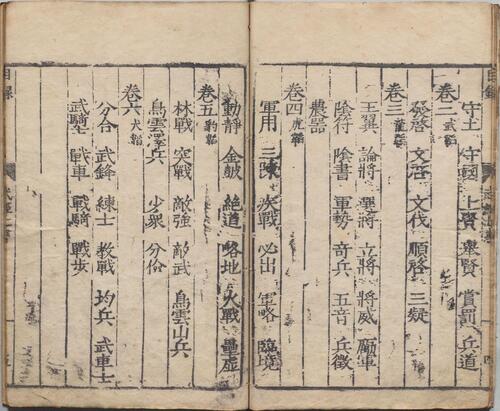 守土 守國 上賢 舉賢 賞罰 兵道
卷二 武韜
發啓 文啓 文伐 順啓 三疑
卷三 龍韜
王翼 論將 選將 立將 將威 勵軍
陰符 陰書 軍勢 奇兵 五音 兵徵
農器
卷四 虎韜
軍用 三陳 疾戰 必出 軍略 臨境
動靜 金鼓 絕道 略地 火戰 壘虛
卷五 豹韜
林戰 突戰 敵強 敵武 鳥雲山兵
鳥雲澤兵 少衆 分險
卷六 犬韜
分合 武鋒 練士 教戰 均兵 武車士
武騎士 戰車 戰騎 戰步